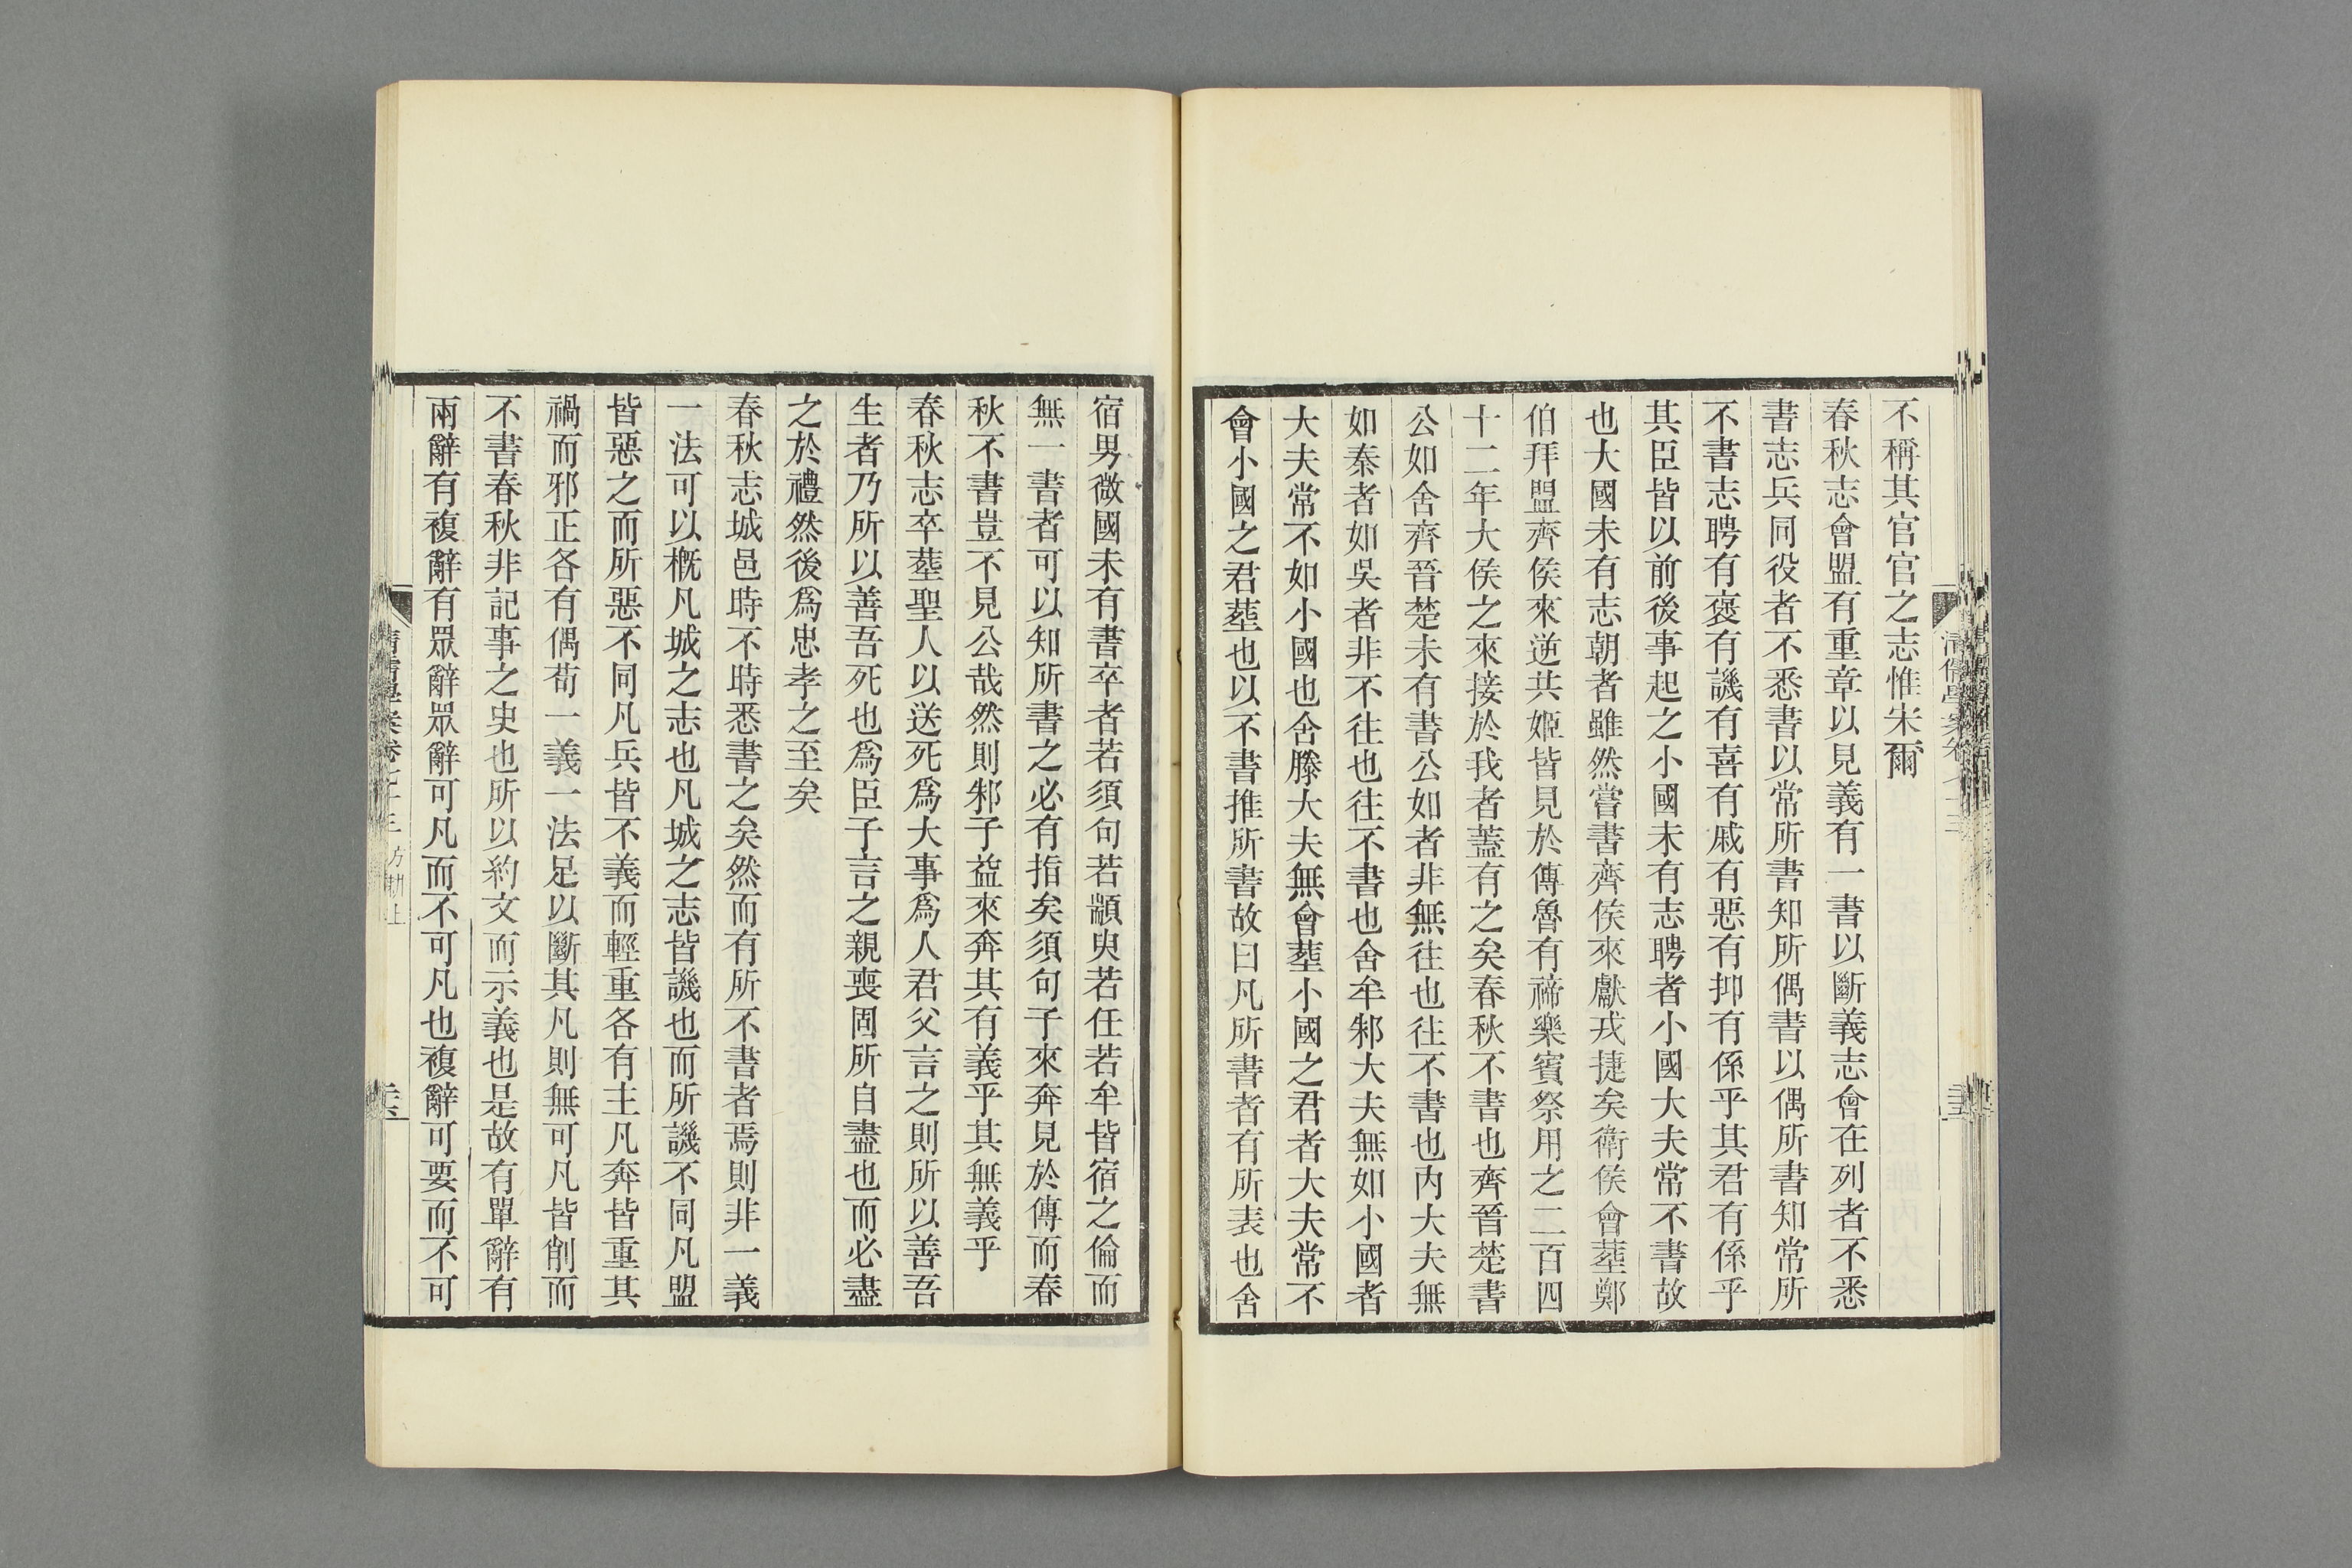 不稱其官官之志惟宋爾
春秋志會盟有重章以見義有一書以斷義志會在列者不悉
書志兵同役者不悉書以常所書知所偶書以偶所書知常所
不書志聘有褒有譏有喜有戚有惡有抑有係乎其君有係乎
其臣皆以前後事起之小國未有志聘者小國大夫常不書故
也大國未有志朝者雖然嘗書齊侯來獻戎捷矣衛侯會塟鄭
伯拜盟齊侯來逆共姬皆見於傳魯有禘樂賓祭用之二百四
十二年大侯之來接於我者蓋有之矣春秋不書也齊晉楚書
公如舍齊晉楚未有書公如者非無往也往不書也內大夫無
如秦者如吳者非不往也往不書也舍牟邾大夫無如小國者
大夫常不如小國也舍滕大夫無會塟小國之君者大夫常不
會小國之君塟也以不書推所書故曰凡所書者有所表也舍
宿男微國未有書卒者若須句若顓臾若任若牟皆宿之倫而
無一書者可以知所書之必有指矣須句子來奔見於傳而春
秋不書豈不見公哉然則邾子益來奔其有義乎其無義乎
春秋志卒塟聖人以送死爲大事爲人君父言之則所以善吾
生者乃所以善吾死也爲臣子言之親喪固所自盡也而必盡
之於禮然後爲忠孝之至矣
春秋志城邑時不時悉書之矣然而有所不書者焉則非一義
一法可以概凡城之志也凡城之志皆譏也而所譏不同凡盟
皆惡之而所惡不同凡兵皆不義而輕重各有主凡奔皆重其
禍而邪正各有偶苟一義一法足以斷其凡則無可凡皆削而
不書春秋非記事之史也所以約文而示義也是故有單辭有
兩辭有複辭有眾辭眾辭可凡而不可凡也複辭可要而不可